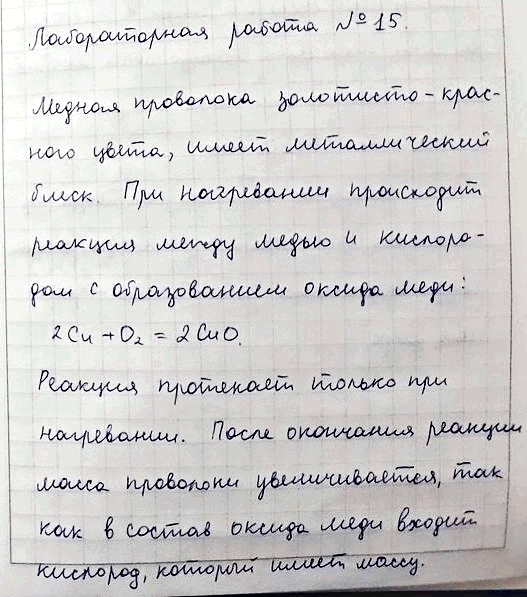 Лабораторная работа № 15.
Медная проволока золотисто-крас-
ного цвета, имеет металлический
блеск. При нагревании происходит
реакция между медью и кислоро-
дом с образованием оксида меди:
2Cu + O₂ = 2CuO.
Реакция протекает только при
нагревании. После окончания реакции
масса проволоки увеличивается, так
как в состав оксида меди входит
кислород, который имеет массу.